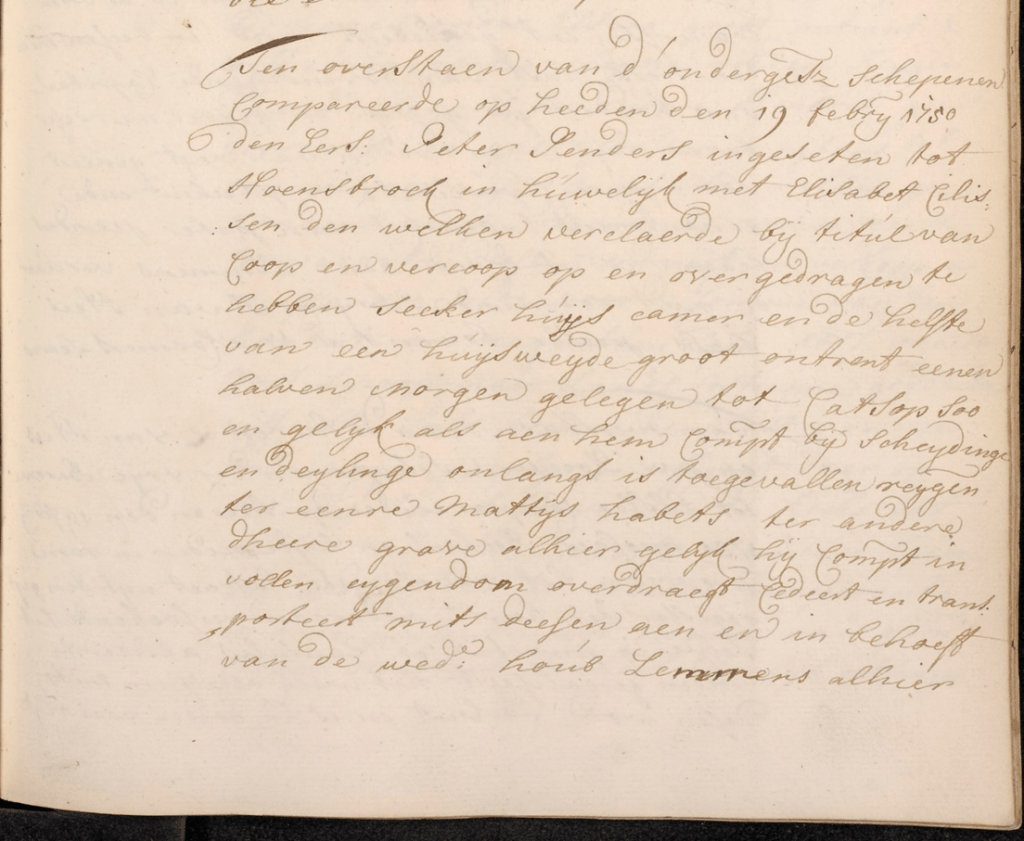 Ten overstaen van d' ondergetz schepenen
Compareerde op heeden den 19 febry 1750
den Eers: Peter Penders ingeseten tot
Hoensbroek in húwelijk met Elisabet Cilis=
:sen den welken verclaerde bij titúl van
Coop en vercoop op en overgedragen te
hebben seeker húijs camer en de helfte
van een húijsweyde groot ontrent eenen
halven morgen gelegen tot Catsop soo
en gelijk als aen hem Compt bij scheydinge
en deylinge onlangs is toegevallen reygen
ter eenre Mattijs habets ter andere
dheere grave alhier gelijk hij Compt in
vollen eygendom overdraegt Cedeert en trans:
porteert mits deesen aen en in behoeff
van de wede: houb Lemmens alhier